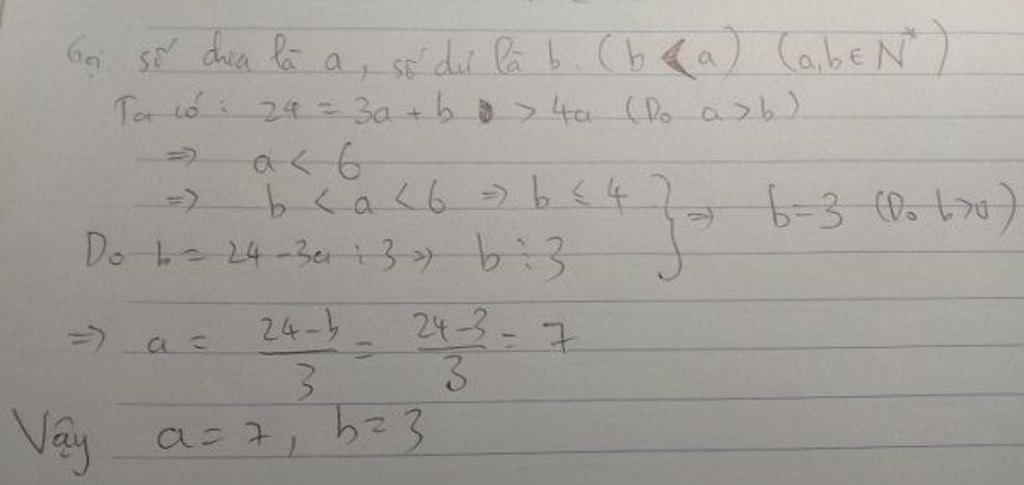 Gọi số chia là a, số dư là b. (b < a) (a,b ∈ N*)
Ta có: 24 = 3a + b > 4a (Do a > b)
=> a < 6
=> b < a < 6 => b ≤ 4 } => b = 3 (Do b > 0)
Do b = 24 - 3a ⋮ 3 => b ⋮ 3
=> a = \frac{24-b}{3} = \frac{24-3}{3} = 7
Vậy a = 7, b = 3